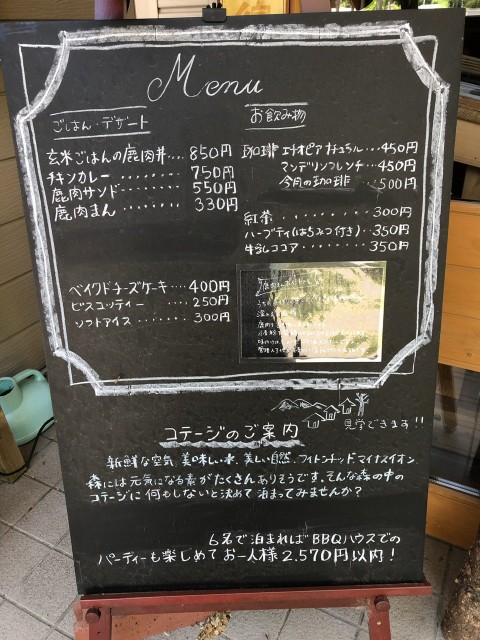 Menu
ごはん・デザート
玄米ごはんの鹿肉丼‥‥850円
チキンカレー‥‥‥‥750円
鹿肉サンド‥‥‥‥550円
鹿肉まん‥‥‥‥330円
ベイクドチーズケーキ‥‥400円
ビスコッティー‥‥‥250円
ソフトアイス‥‥‥‥300円
お飲み物
珈琲 エチオピアナチュラル‥‥450円
マンデリンフレンチ‥‥450円
今月の珈琲‥‥500円
紅茶‥‥‥‥‥300円
ハーブティ(はちみつ付き)‥350円
牛乳ココア‥‥‥‥350円
コテージのご案内
見学できます!!
新鮮な空気、美味しい水、美しい自然、フィトンチッドマイナスイオン
森には元気になる素がたくさんありそうです。そんな森の中の
コテージに何もしないと決めて泊まってみませんか?
6名で泊まればBBQハウスでの
パーティーも楽しめてお一人様2.570円以内!